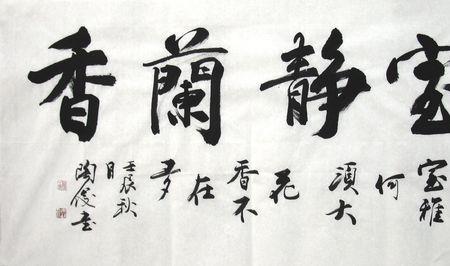 室静蘭香
室雅
何
須大
花
香不
在
多
壬辰秋
月
陶俊書